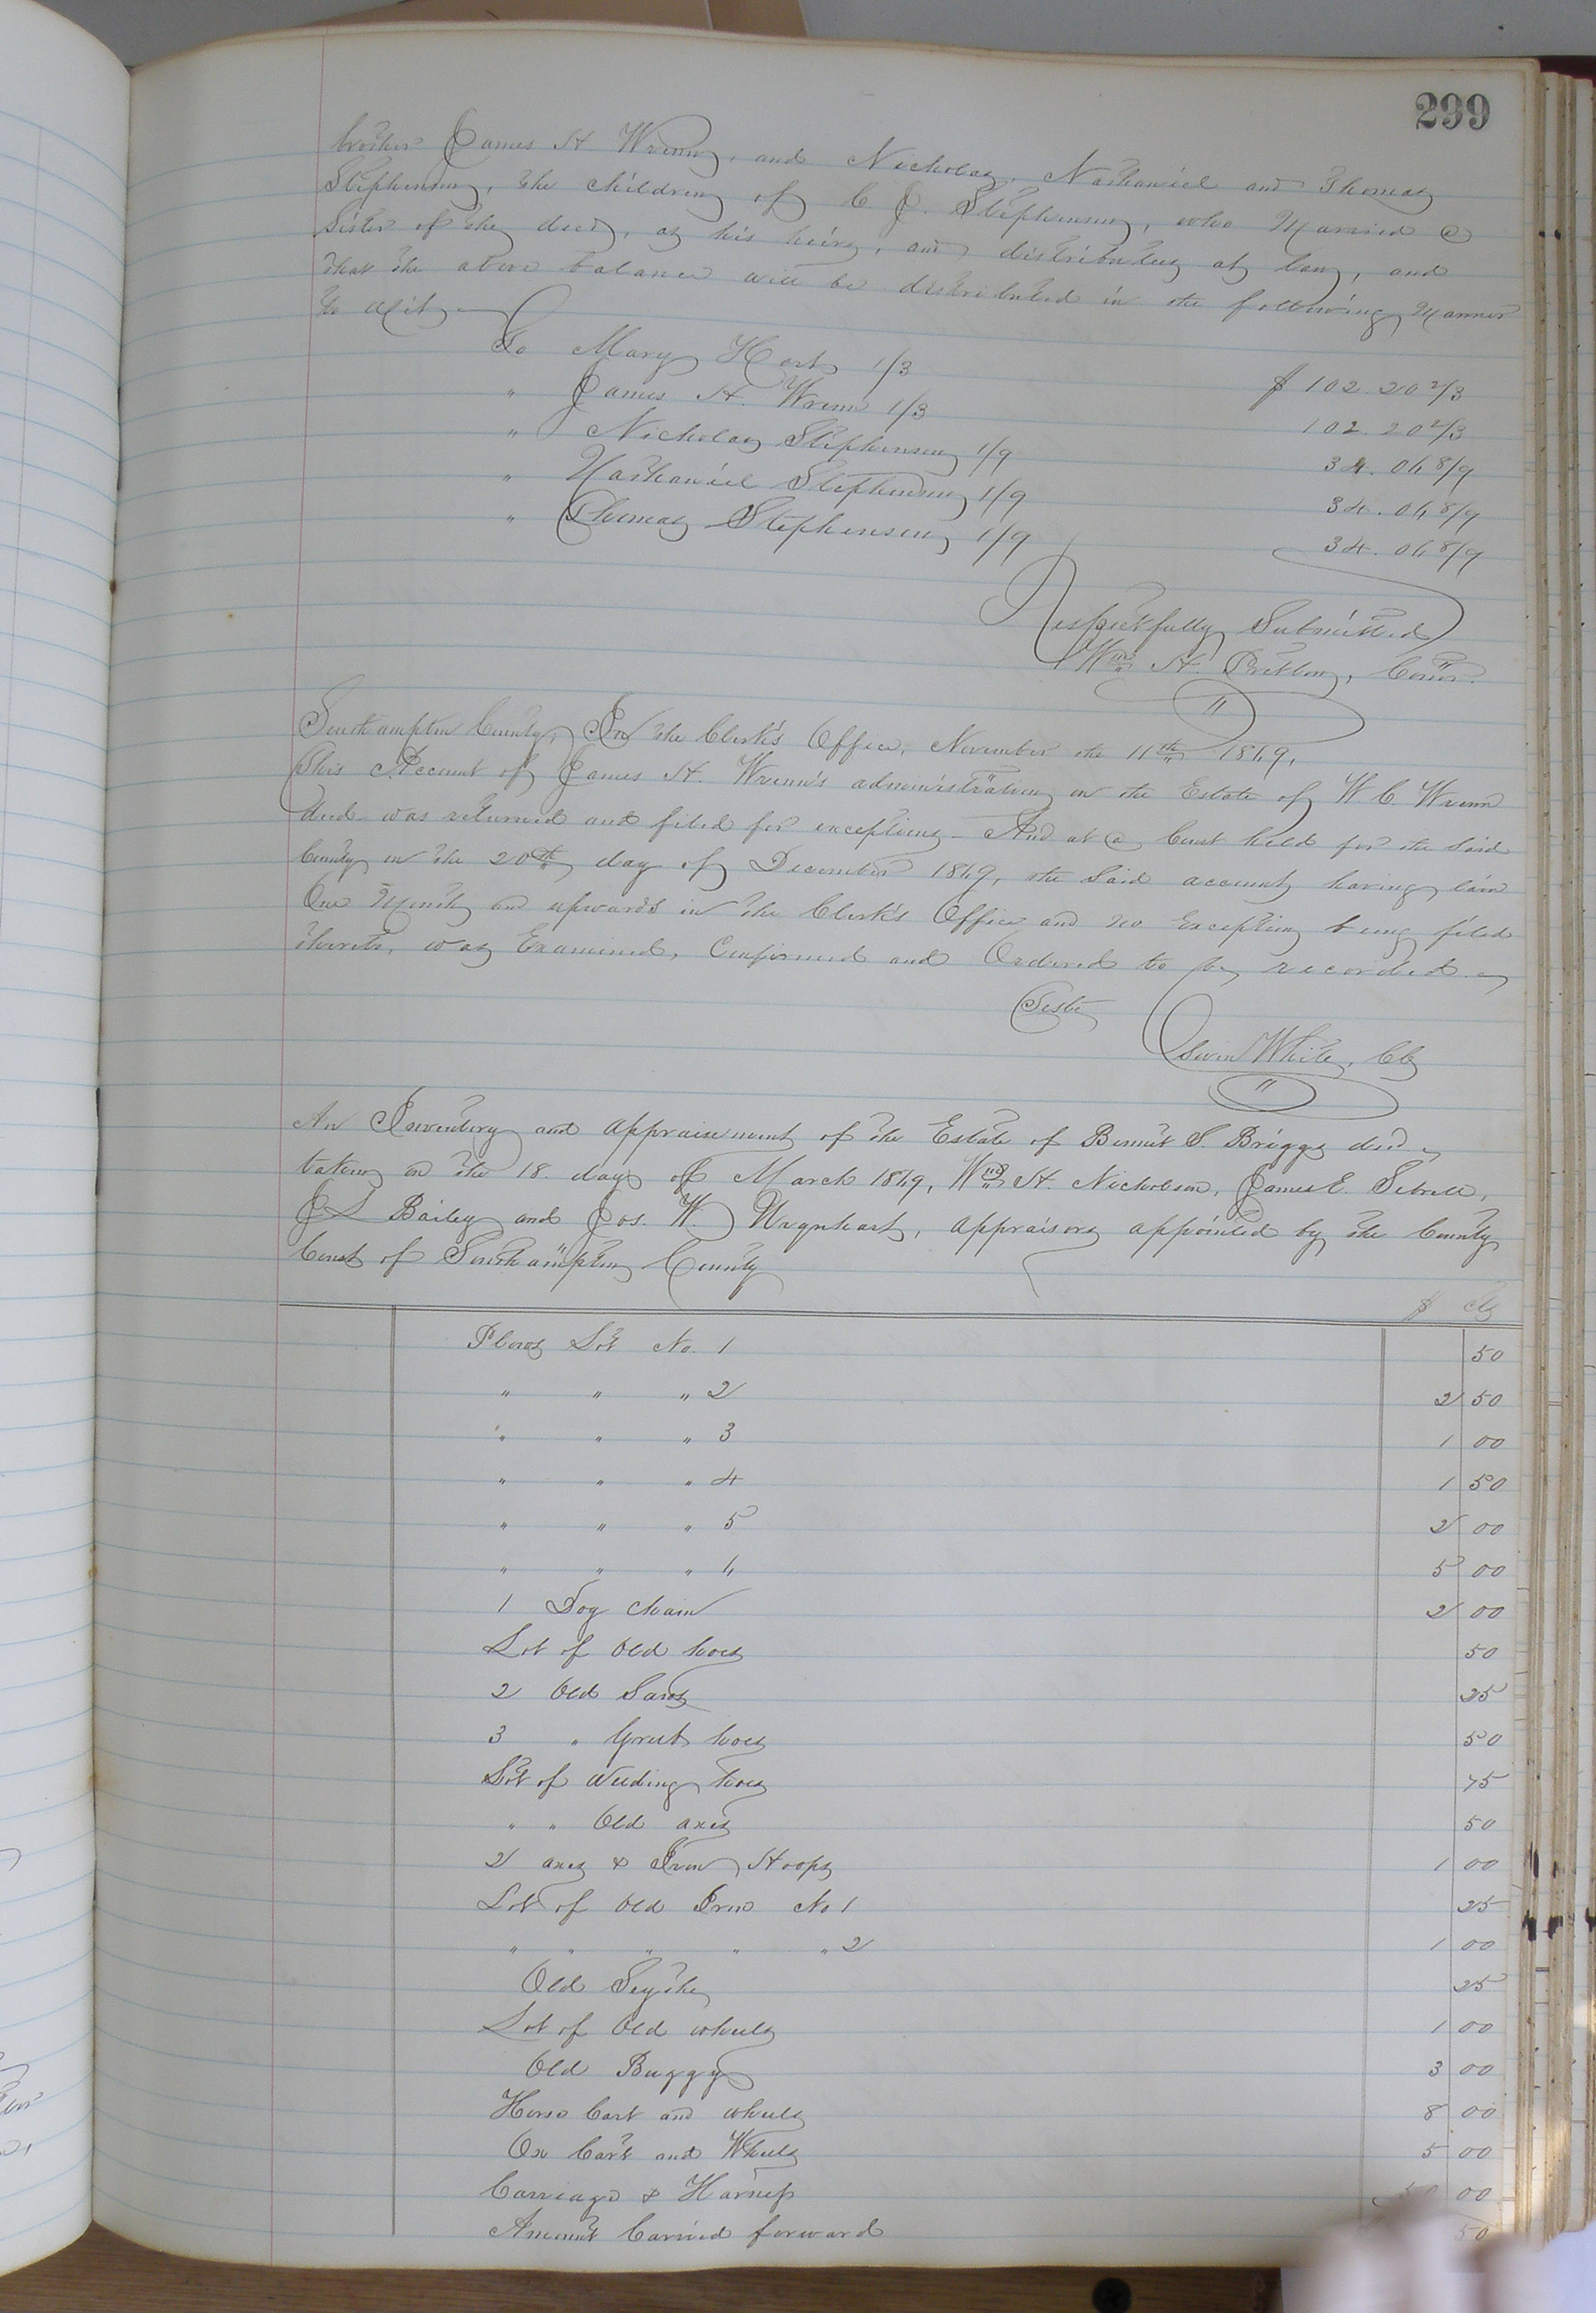 299
brother James H Wrenn, and Nicholas, Nathaniel and Thomas
Stephenson, the children of C J. Stephenson, who Married a
Sister of the decd, as his heirs, and distributees at law, and
that the above balance will be distributed in the following Manner
to wit,
To Mary Hart 1/3 $ 102.20 2/3
" James H. Wrenn 1/3 102.20 2/3
" Nicholas Stephenson 1/9 34.06 8/9
" Nathaniel Stephenson 1/9 34.06 8/9
" Thomas Stephenson 1/9 34.06 8/9
Respectfully Submitted
Wm H. Pretlow, Comr.
"
Southampton County, In the Clerk's Office, November the 11th 1869,
This Account of James H. Wrenn's administration on the Estate of W C. Wrenn
decd. was returned and filed for exceptions – And at a Court held for the said
County on the 20th day of December 1869, the said account having lain
One Month and upwards in the Clerk's Office and no Exception being filed
thereto, was Examined, Confirmed and Ordered to be recorded –
Teste
Oswin White, Clk
"
An Inventory and Appraisement of the Estate of Bennit S. Briggs decd –
taken on the 18. day of March 1869, Wm H. Nicholson, James E. Sebrell,
J L Bailey and Jos. W. Urquhart, Appraisors appointed by the County
Court of Southampton County
$ cts
Plows Lot No. 1 50
" " " 2 2 50
" " " 3 1 00
" " " 4 1 50
" " " 5 2 00
" " " 6 5 00
1 Dog chain 2 00
Lot of Old hoes 50
2 Old Saws 25
3 " Grub hoes 50
Lot of Weeding hoes 75
" " Old axes 50
2 axes & Iron Hoops 1 00
Lot of Old Iron No 1 25
" " " " " 2 1 00
Old Scythe 25
Lot of Old wheels 1 00
Old Buggy 3 00
Horse Cart and wheels 8 00
Ox Cart and Wheels 5 00
Carriage & Harness 00
Amount Carried forward 50